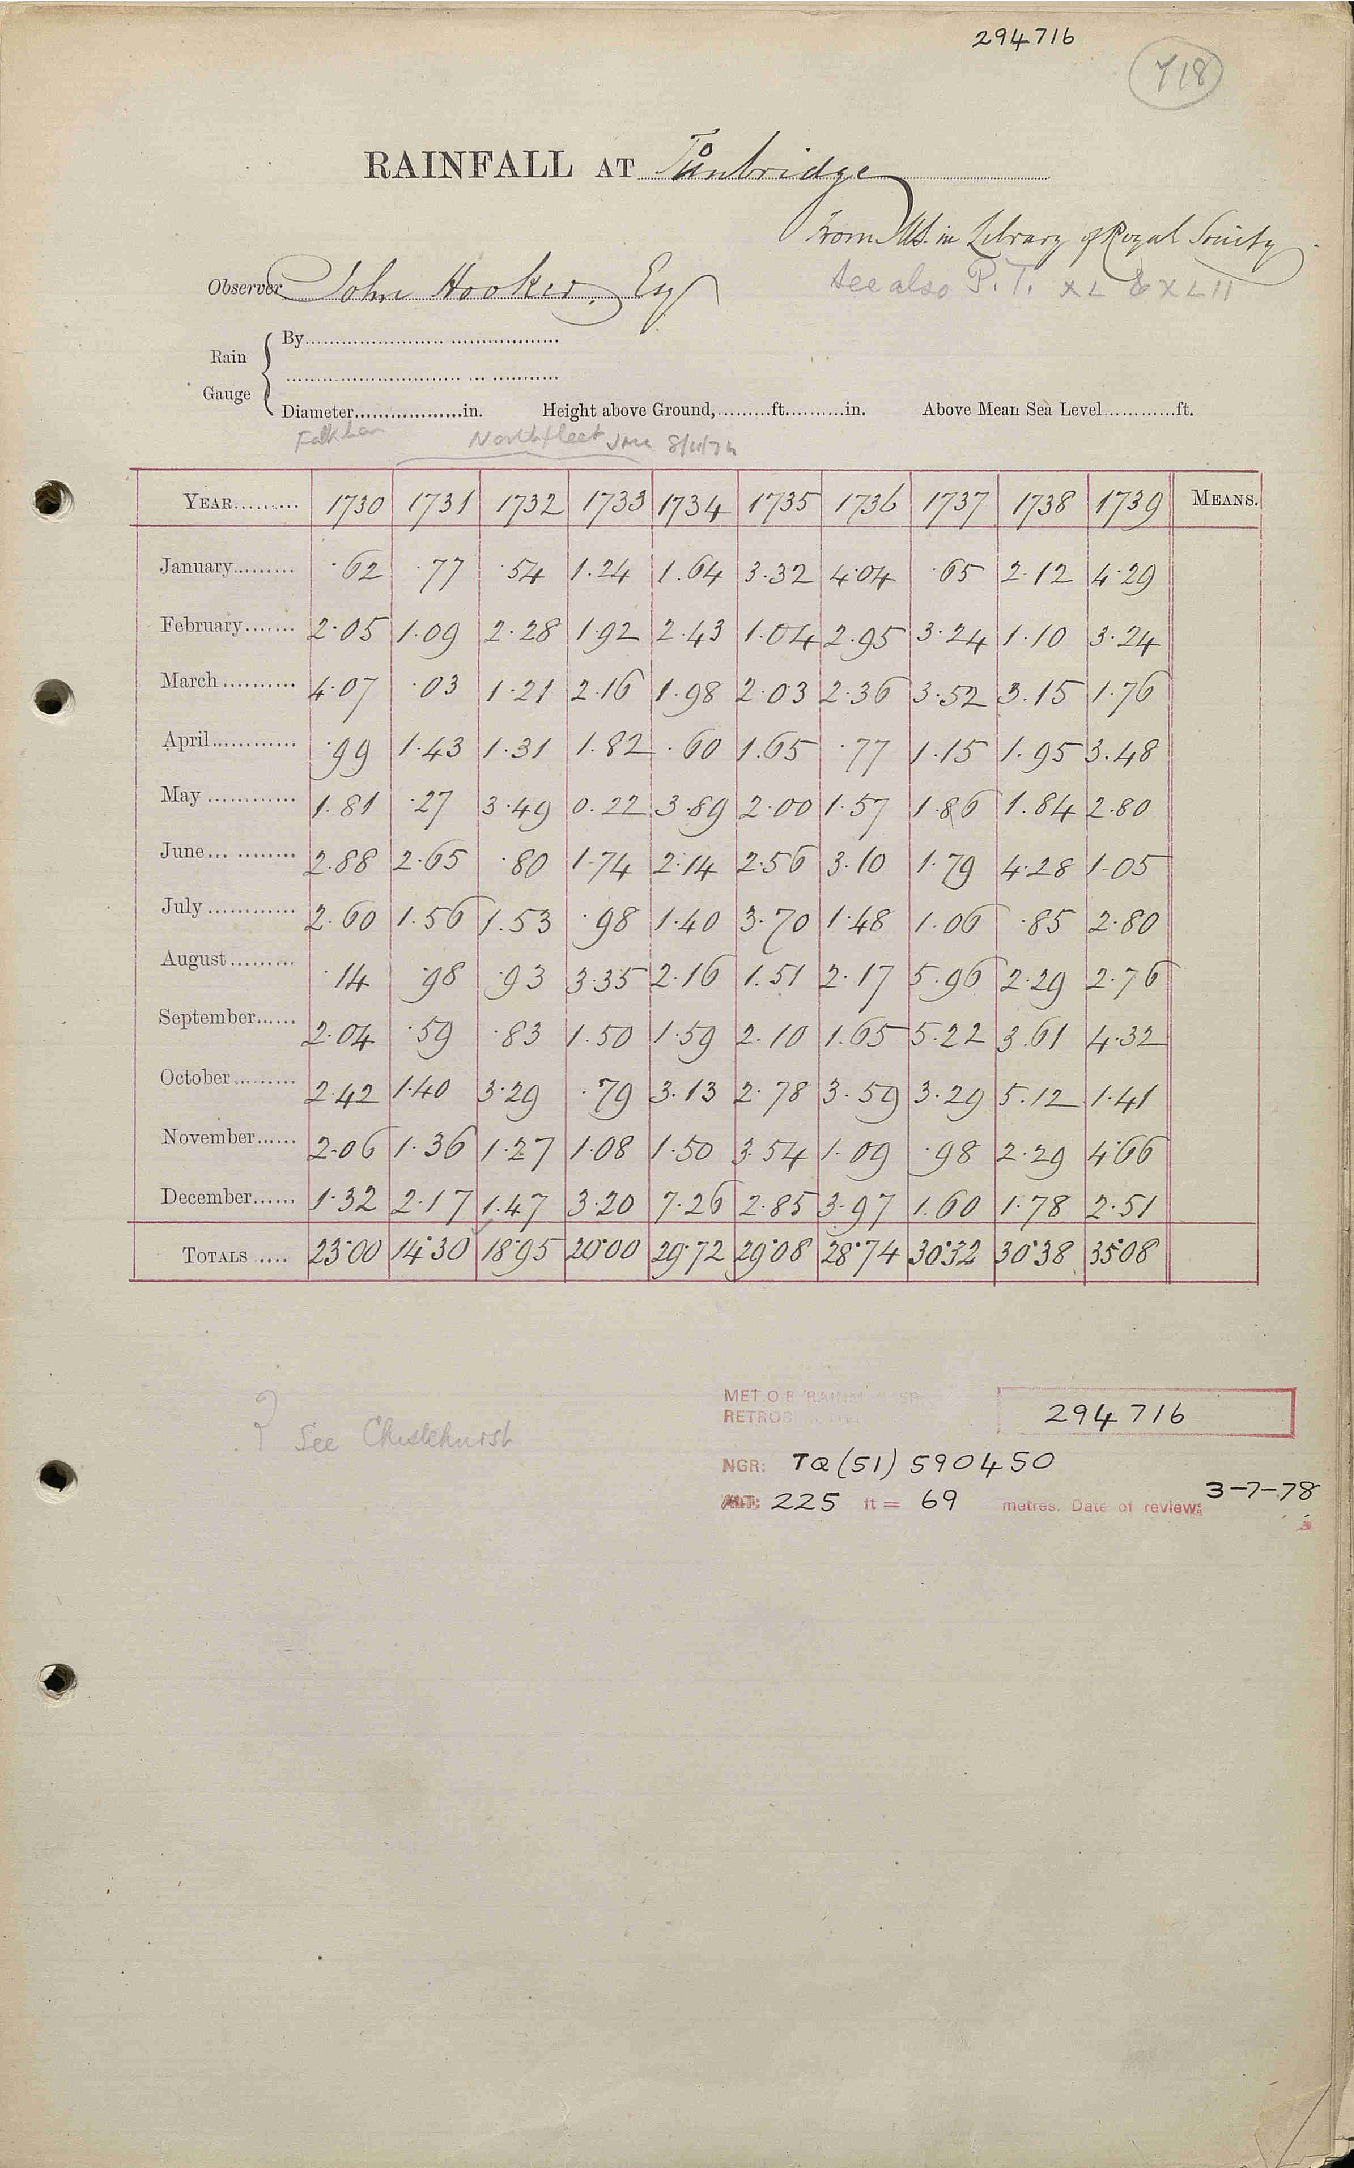 294716
718
RAINFALL AT Tunbridge
From MS. in Library of Royal Society
Observer John Hooker, Esq
See also P.T. XL & XLII
Rain Gauge
By
Diameter in. Height above Ground, ft. in. Above Mean Sea Level ft.
Northfleet 8/11/72
YEAR 1730 1731 1732 1733 1734 1735 1736 1737 1738 1739 MEANS.
January .62 .77 .54 1.24 1.64 3.32 4.04 .65 2.12 4.29
February 2.05 1.09 2.28 1.92 2.43 1.04 2.95 3.24 1.10 3.24
March 4.07 .03 1.21 2.16 1.98 2.03 2.36 3.52 3.15 1.76
April .99 1.43 1.31 1.82 .60 1.65 .77 1.15 1.95 3.48
May 1.81 .27 3.49 0.22 3.89 2.00 1.57 1.86 1.84 2.80
June 2.88 2.65 .80 1.74 2.14 2.56 3.10 1.79 4.28 1.05
July 2.60 1.56 1.53 .98 1.40 3.70 1.48 1.06 .85 2.80
August .14 .98 .93 3.35 2.16 1.51 2.17 5.96 2.29 2.76
September 2.04 .59 .83 1.50 1.59 2.10 1.65 5.22 3.61 4.32
October 2.42 1.40 3.29 .79 3.13 2.78 3.59 3.29 5.12 1.41
November 2.06 1.36 1.27 1.08 1.50 3.54 1.09 .98 2.29 4.66
December 1.32 2.17 1.47 3.20 7.26 2.85 3.97 1.60 1.78 2.51
TOTALS 23.00 14.30 18.95 20.00 29.72 29.08 28.74 30.32 30.38 35.08
? See Chislehurst
MET.O.8
294716
NGR: TQ (51) 590450
ALT: 225 ft = 69 metres. Date of review: 3-7-78